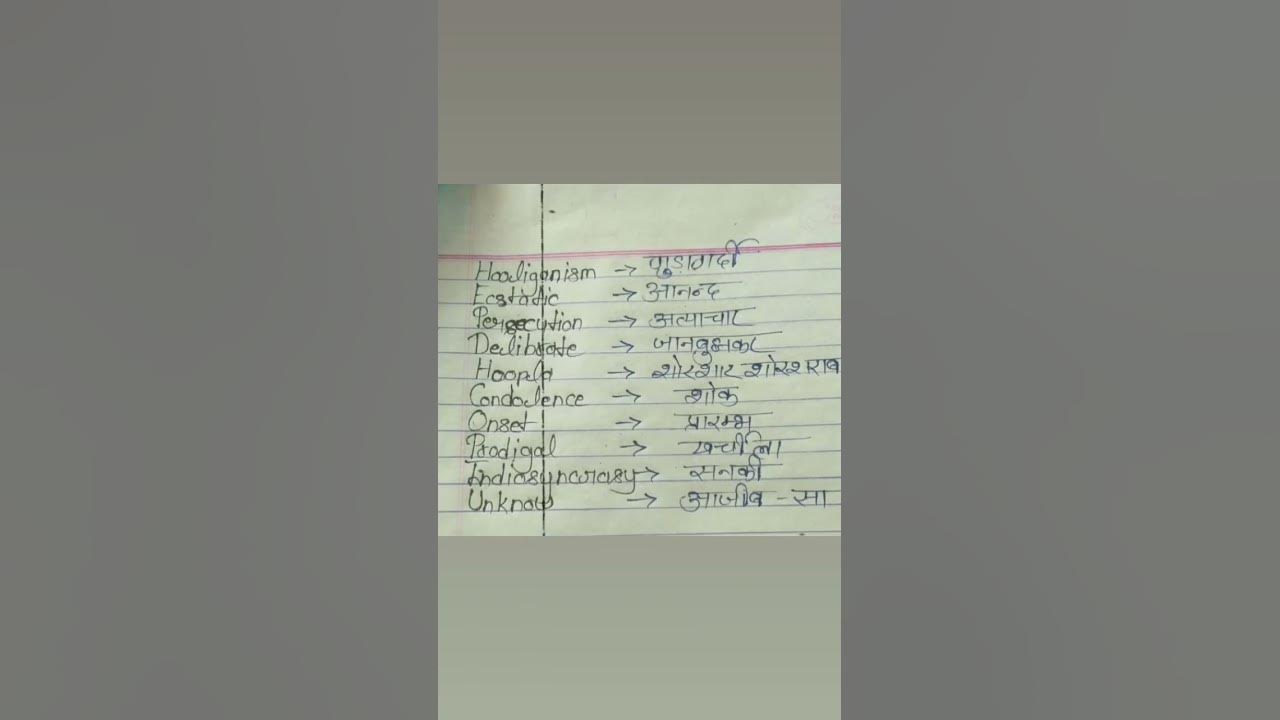 Hooliganism → गुडागर्दी
Ecstatic → आनन्द
Persecution → अत्याचार
Delibrate → जानबुझकर
Hoopla → शोरशार शोरशराब
Condolence → शोक
Onset → प्रारम्भ
Prodigal → खर्चीला
Indiosyncrasy → सनकी
Unknow → आजीब - सा